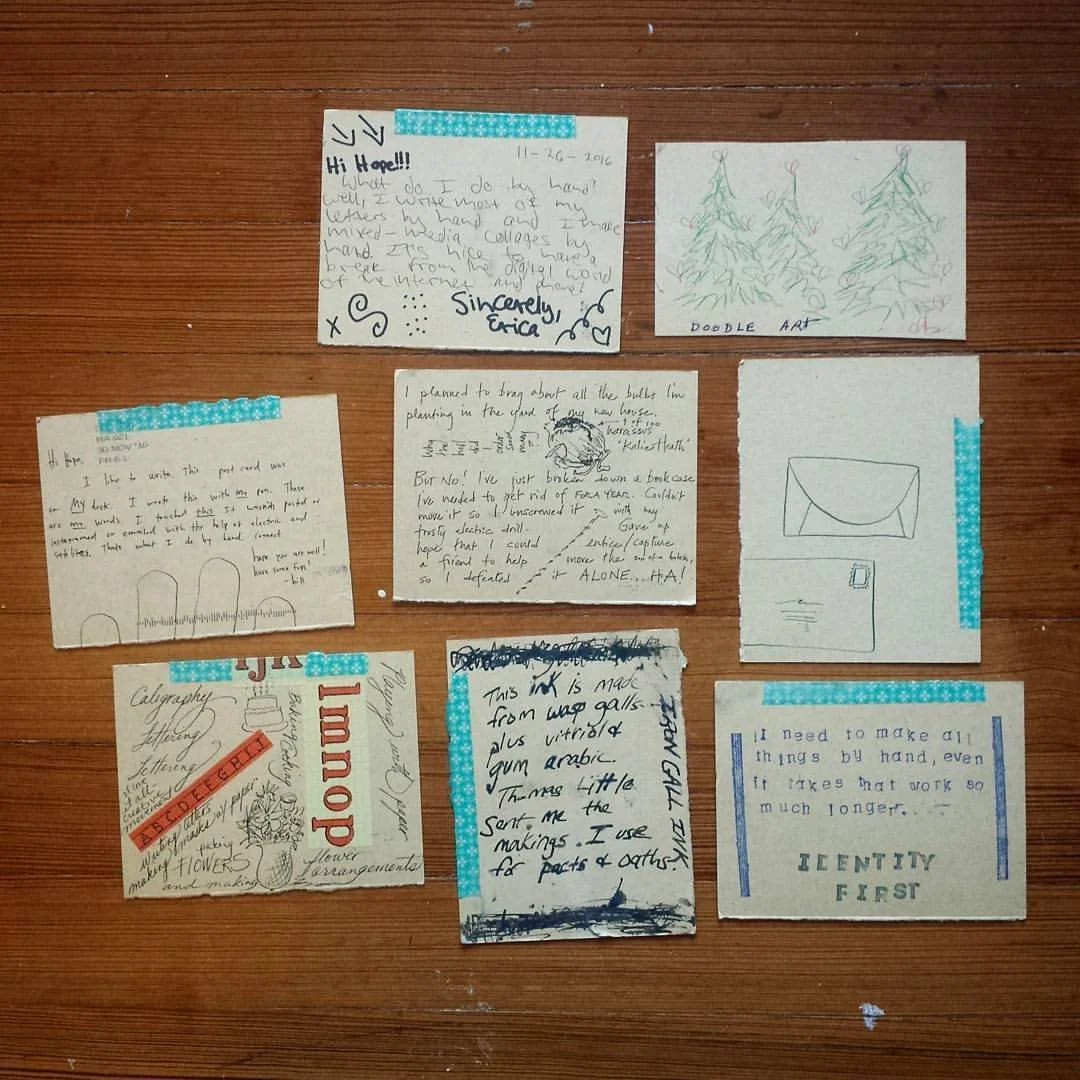 Hi Hope!!!
11-26-2016
What do I do by hand?
Well, I write most of my
letters by hand and I make
mixed-media collages by
hand. It's nice to have a
break from the digital world
of the internet and phone!
Sincerely,
Erica
X
DOODLE ART
30 NOV '16
Hi Hope.
I like to write. This post card was
on My desk. I wrote this with my pen. These
are my words. I touched this. It wasn't posted or
instagramed or emailed with the help of electric and
satellites. That's what I do by hand. connect
hope you are well!
have some fun!
- bill
I planned to brag about all the bulbs I'm
planting in the yard of my new house.
1 of 100
But NO! I've just broken down a bookcase
I've needed to get rid of FOR A YEAR. Couldn't
move it so I unscrewed it with my
trusty electric drill.
Gave up
hope that I could entice/capture
a friend to help move the
so I defeated it ALONE....HA!
IJK
Caligraphy
Lettering
Lettering
ABCDEFGHIJ
Baking
Cooking
lmnop
Playing with paper
Writing letters
making w/ paper
FLOWERS
and making
flower
arrangements
This ink is made
from wasp galls
plus vitriol &
gum arabic.
Thomas Little
Sent me the
makings. I use
for pacts & oaths.
IRON GALL INK
I need to make all
things by hand, even
if takes that work so
much longer....
IDENTITY
FIRST